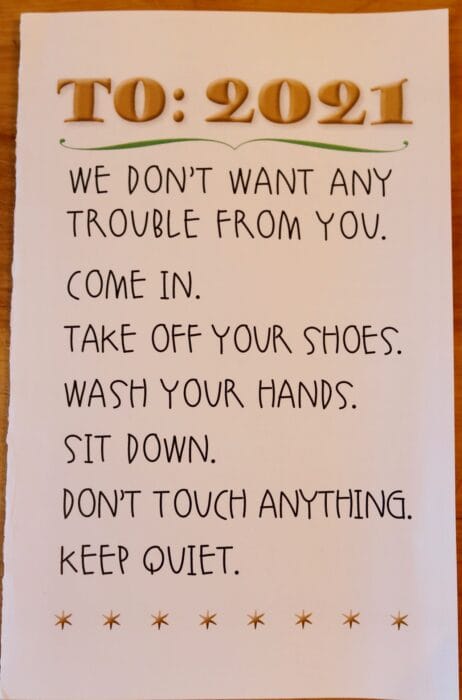 TO: 2021
WE DON'T WANT ANY
TROUBLE FROM YOU.
COME IN.
TAKE OFF YOUR SHOES.
WASH YOUR HANDS.
SIT DOWN.
DON'T TOUCH ANYTHING.
KEEP QUIET.